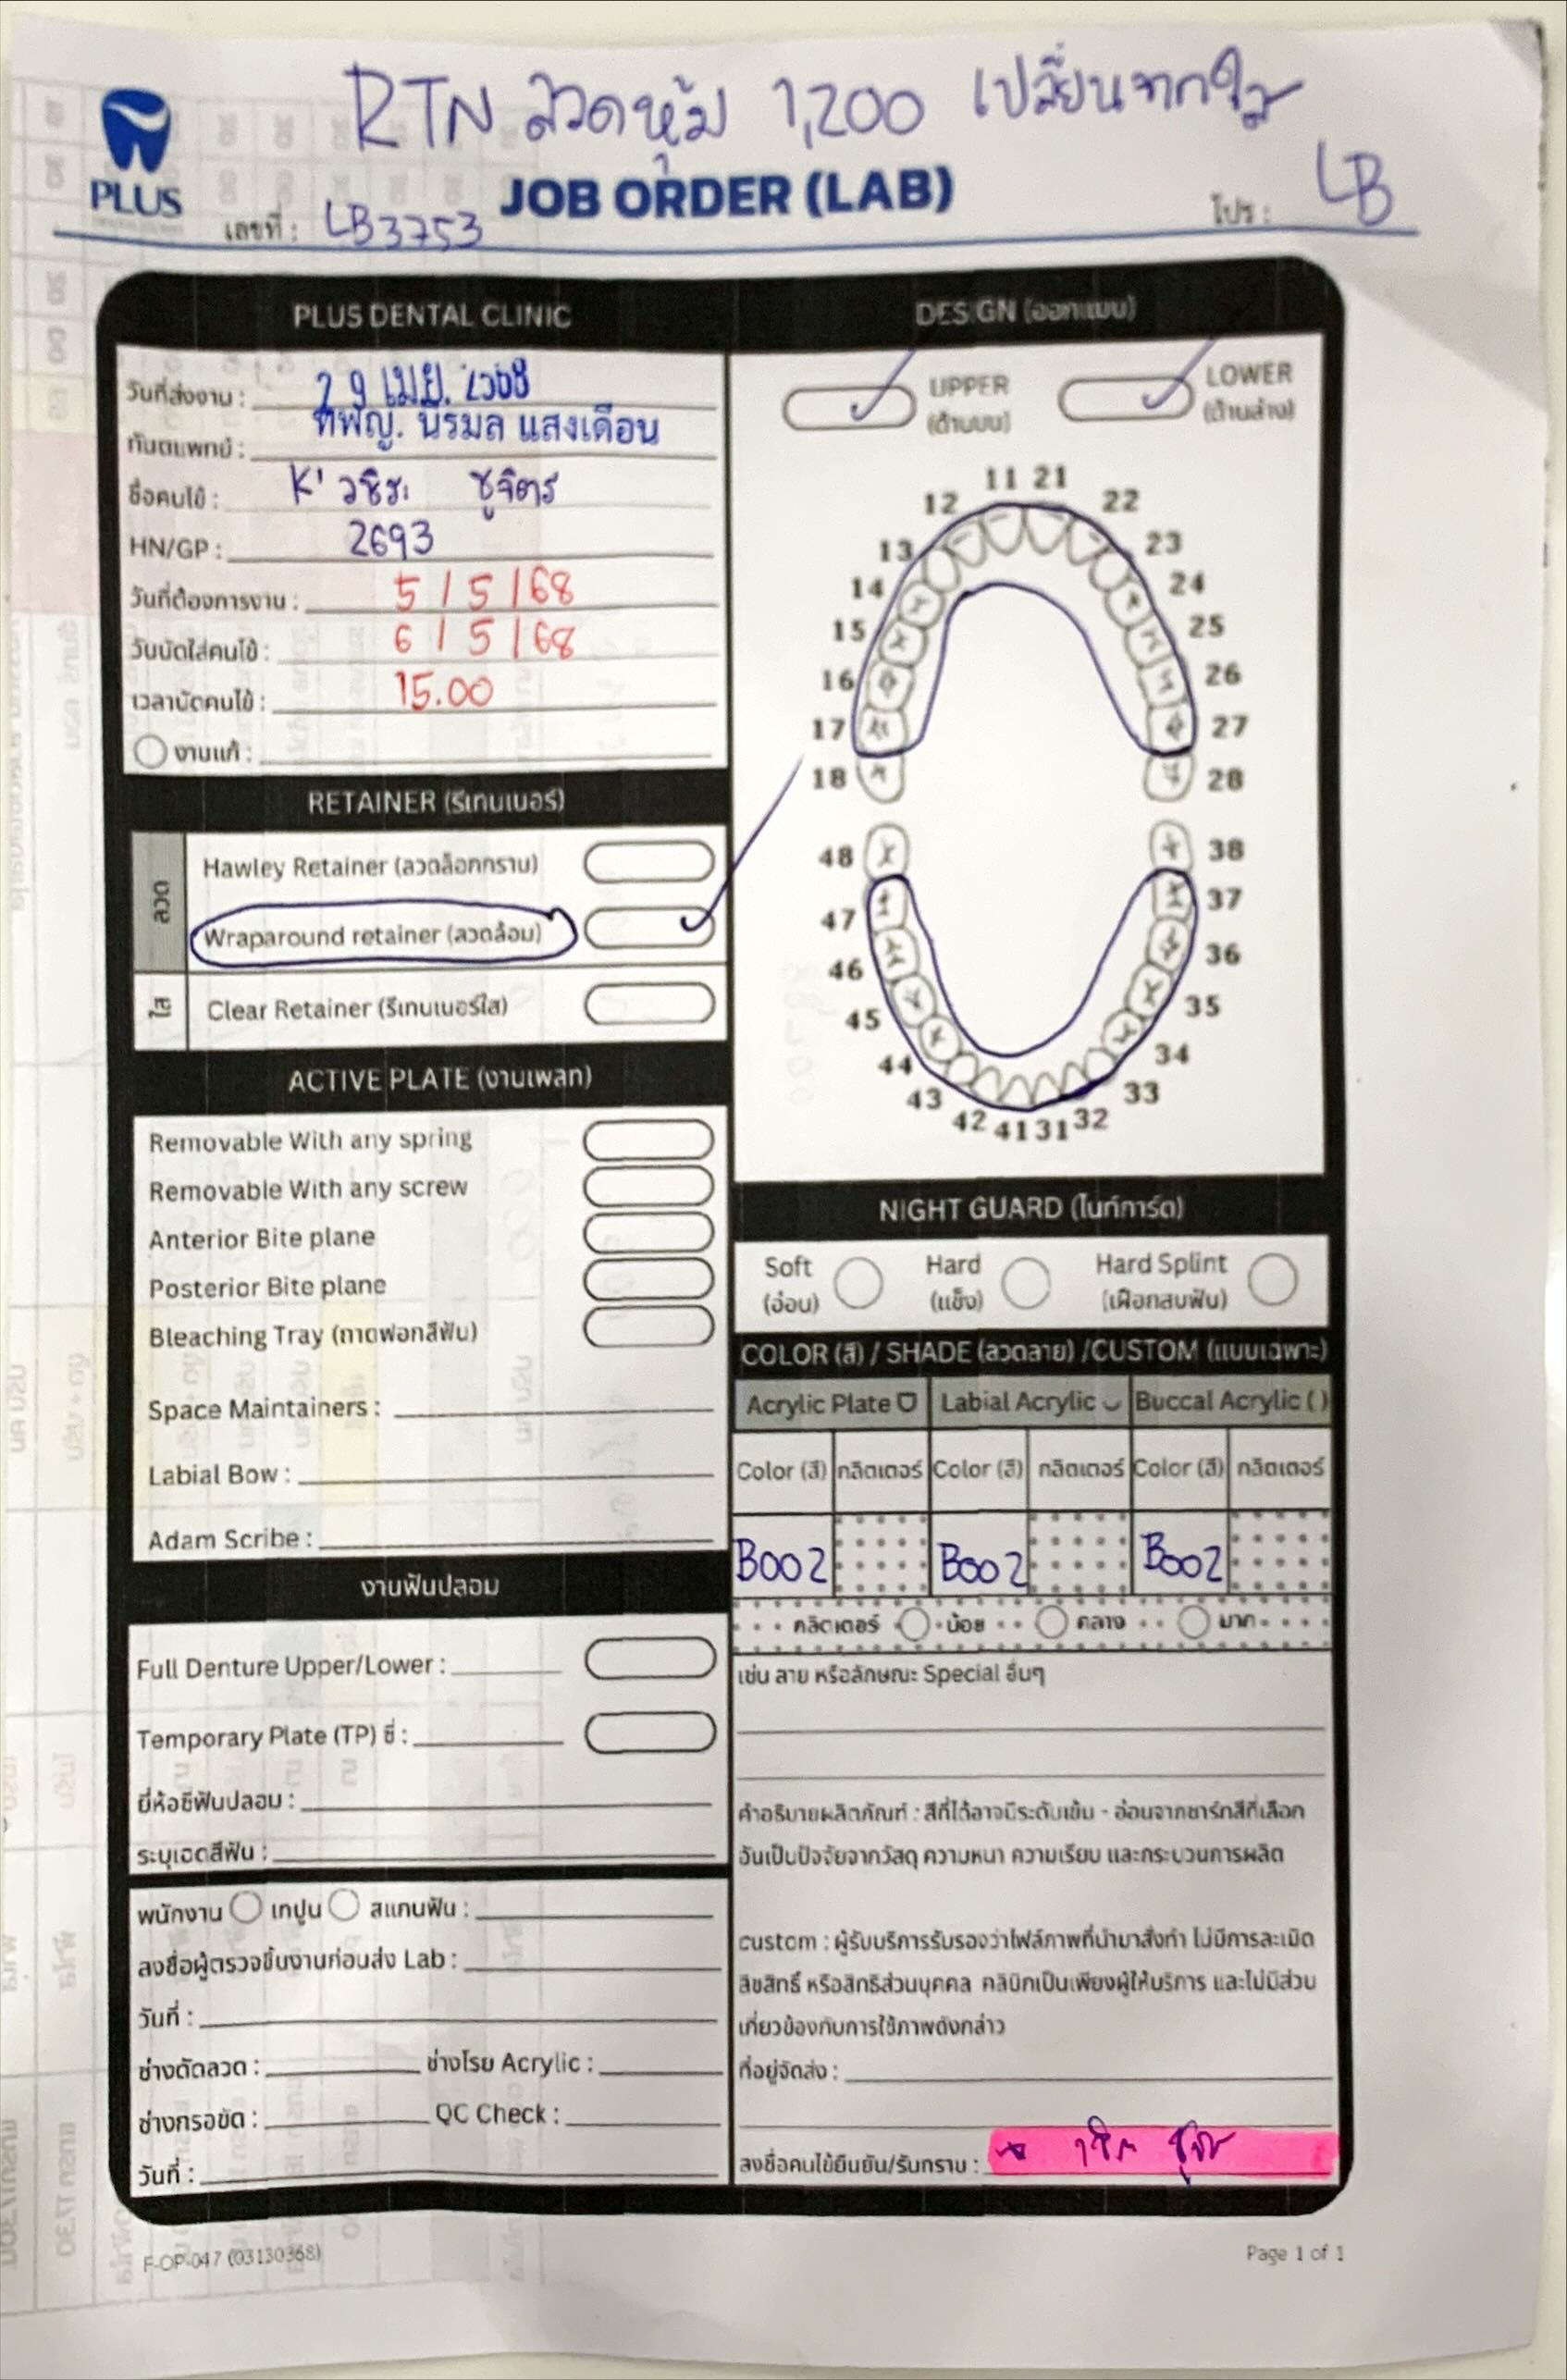 RTN ลวดหุ้ม 1,200 เปลี่ยนจากใส
PLUS
JOB ORDER (LAB)
เลขที่ : LB3753
โปร : LB
PLUS DENTAL CLINIC
วันที่ส่งงาน : 29 เม.ย. 2568
ทันตแพทย์ : ทพญ. นิรมล แสงเดือน
ชื่อคนไข้ : K' วชิระ ชูจิตร
HN/GP : 2693
วันที่ต้องการงาน : 5 / 5 / 68
วันนัดใส่คนไข้ : 6 / 5 / 68
เวลานัดคนไข้ : 15.00
งานแก้ :
RETAINER (รีเทนเนอร์)
ลวด
Hawley Retainer (ลวดล็อกกราม)
Wraparound retainer (ลวดล้อม)
ใส
Clear Retainer (รีเทนเนอร์ใส)
ACTIVE PLATE (งานเพลท)
Removable With any spring
Removable With any screw
Anterior Bite plane
Posterior Bite plane
Bleaching Tray (ถาดฟอกสีฟัน)
Space Maintainers :
Labial Bow :
Adam Scribe :
งานฟันปลอม
Full Denture Upper/Lower :
Temporary Plate (TP) ซี่ :
ยี่ห้อซี่ฟันปลอม :
ระบุเฉดสีฟัน :
พนักงาน เทปูน สแกนฟัน :
ลงชื่อผู้ตรวจชิ้นงานก่อนส่ง Lab :
วันที่ :
ช่างดัดลวด : ช่างโรย Acrylic :
ช่างกรอขัด : QC Check :
วันที่ :
DESIGN (ออกแบบ)
UPPER (ด้านบน)
LOWER (ด้านล่าง)
11 21
12 22
13 23
14 24
15 25
16 26
17 27
18 28
48 38
47 37
46 36
45 35
44 34
43 33
42 41 31 32
NIGHT GUARD (ไนท์การ์ด)
Soft (อ่อน) Hard (แข็ง) Hard Splint (เฝือกสบฟัน)
COLOR (สี) / SHADE (ลวดลาย) /CUSTOM (แบบเฉพาะ)
Acrylic Plate Labial Acrylic Buccal Acrylic ( )
Color (สี) กลิตเตอร์ Color (สี) กลิตเตอร์ Color (สี) กลิตเตอร์
B002 B002 B002
กลิตเตอร์ น้อย กลาง มาก
เช่น ลาย หรือลักษณะ Special อื่นๆ
คำอธิบายผลิตภัณฑ์ : สีที่ได้อาจมีระดับเข้ม - อ่อนจากชาร์กสีที่เลือก
อันเป็นปัจจัยจากวัสดุ ความหนา ความเรียบ และกระบวนการผลิต
custom : ผู้รับบริการรับรองว่าไฟล์ภาพที่นำมาสั่งทำ ไม่มีการละเมิด
ลิขสิทธิ์ หรือสิทธิส่วนบุคคล คลินิกเป็นเพียงผู้ให้บริการ และไม่มีส่วน
เกี่ยวข้องกับการใช้ภาพดังกล่าว
ที่อยู่จัดส่ง :
ลงชื่อคนไข้ยืนยัน/รับทราบ :
F-OP-047 (03130368)
Page 1 of 1